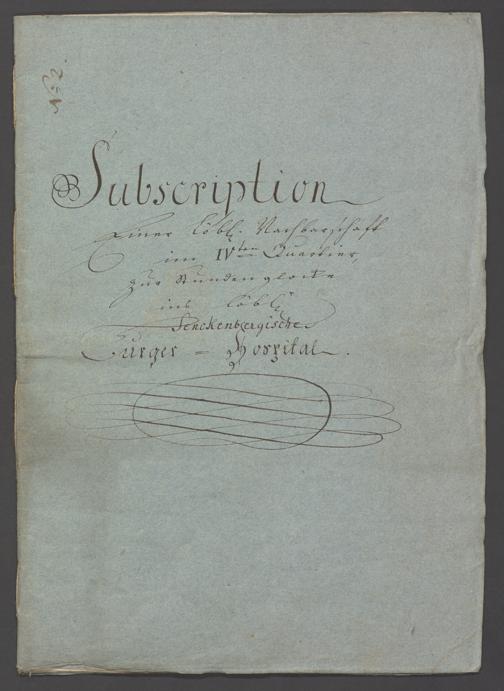 N: 2.
Subscription
Einer löbl. Nachbarschaft
im IVten Quartier,
zur Stundenglocke
ins löbl.
Senckenbergische
Burger - Hospital.